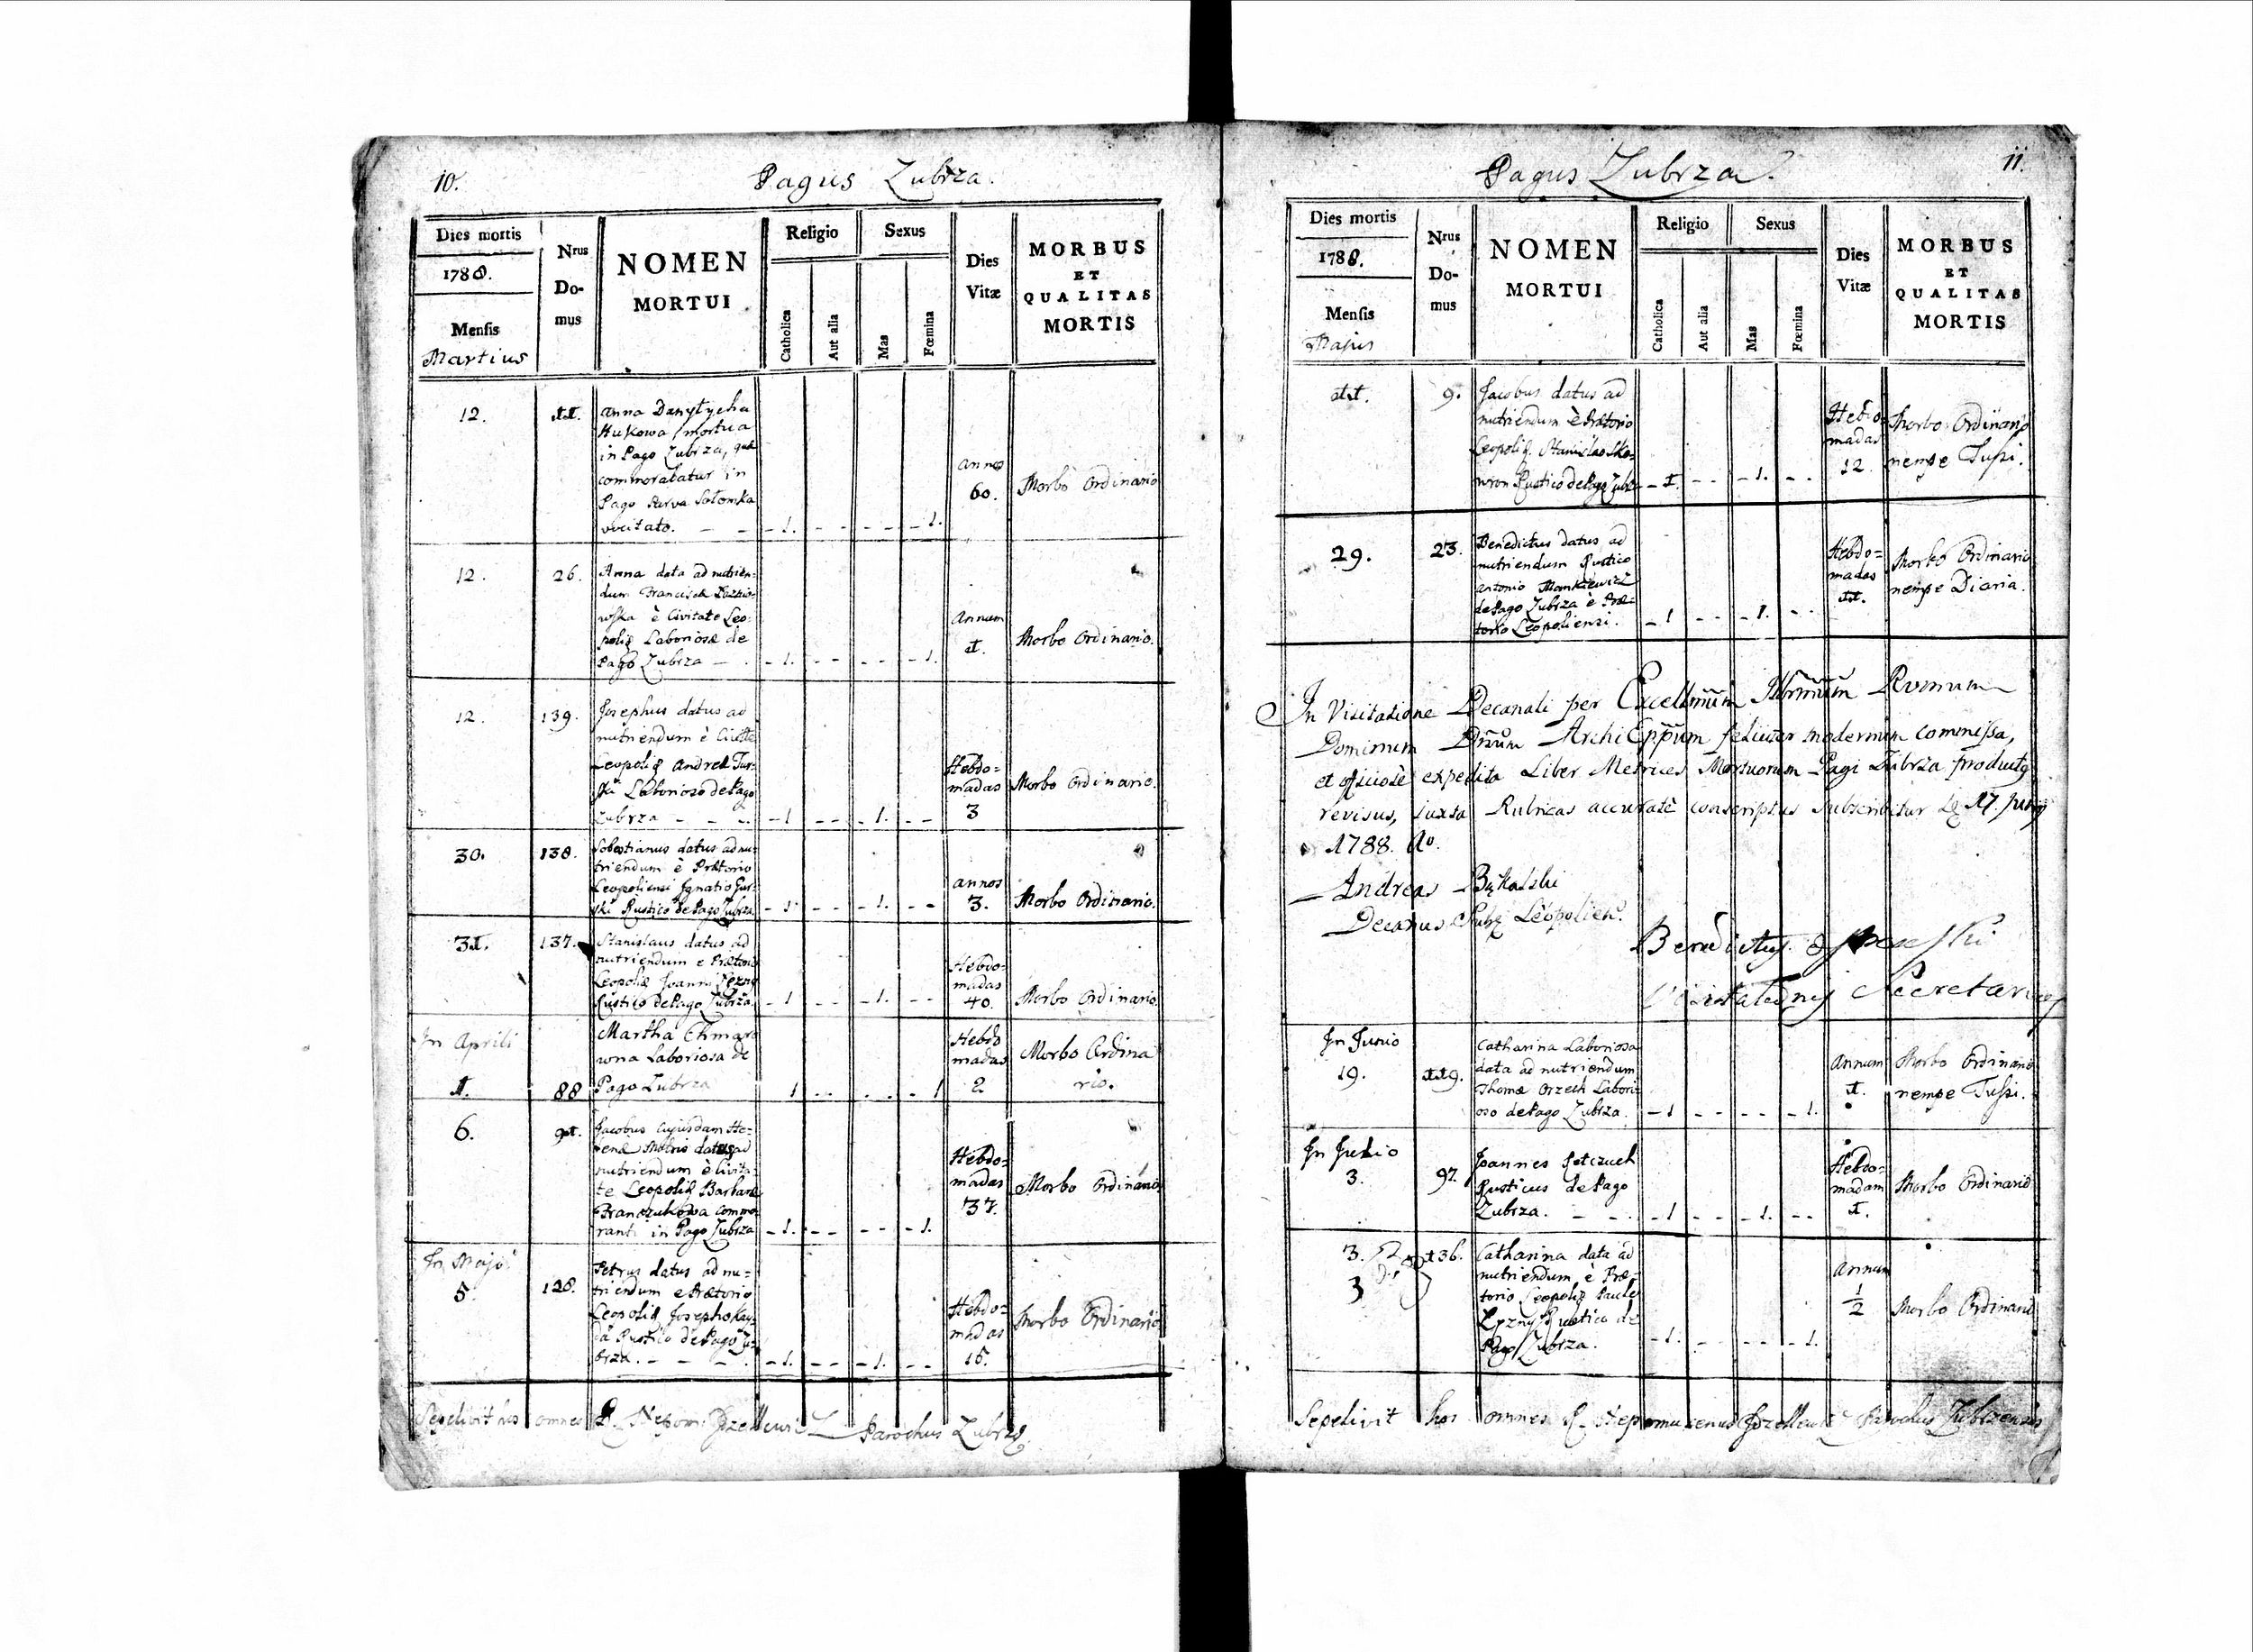 10.
Pagus Zubrza.
Dies mortis
1788.
Mensis
Martius
Nrus
Do-
mus
NOMEN
MORTUI
Religio
Catholica
Aut alia
Sexus
Mas
Fœmina
Dies
Vitæ
MORBUS
ET
QUALITAS
MORTIS
12.
11.
Anna Danyłycha
Hukowa mortua
in Pago Zubrza, quæ
commorabatur in
Pago Parva Sołonka
vocitato. - - - 1. - - - - - 1.
Annos
60.
Morbo Ordinario
12.
26.
Anna data ad nutrien=
dum
è Civitate Leo=
polię Laboriosæ de
Pago Zubrza - - 1. - - - - - 1.
Annum
1.
Morbo Ordinario.
12.
139.
Josephus datus ad
nutriendum è Civitte
Leopolię Andreæ Tur=
ski Laborioso de Pago
Zubrza - - - - 1 - - - 1. - -
Hebdo=
madas
3
Morbo Ordinario.
30.
138.
Sebastianus datus ad nu=
triendum è Prætorio
Leopoliensi Ignatio Gur=
ski Rustico de Pago Zubrza - 1. - - - 1. - -
Annos
3.
Morbo Ordinario.
31.
137.
Stanislaus datus ad
nutriendum e Prætorio
Leopoliæ Joanni
Rustico de Pago Zubrza. - 1 - - - 1. - -
Hebdo=
madas
40.
Morbo Ordinario.
In Aprili
1.
88
Martha Chmaro
wna Laboriosa de
Pago Zubrza 1 - - - - 1
Hebdo
madas
2
Morbo Ordina
rio.
6.
91.
Jacobus cujusdam He=
lenæ Matris datus ad
nutriendum è Civita=
te Leopolię Barbaræ
Branczukowa commo
ranti in Pago Zubrza - 1. - - - - - 1.
Hebdo=
madas
37.
Morbo Ordinario
In Majo
5.
128.
Petrus datus ad nu=
triendum e Prætorio
Leopolię Josepho Kay=
da Rustico de Pago Zu=
brza. - - - - 1. - - - 1. - -
Hebdo=
madas
15.
Morbo Ordinario
Sepelivit hos omnes P. Nepom: Parochus Zubrzę
11.
Pagus Zubrza.
Dies mortis
1788.
Mensis
Majus
Nrus
Do-
mus
NOMEN
MORTUI
Religio
Catholica
Aut alia
Sexus
Mas
Fœmina
Dies
Vitæ
MORBUS
ET
QUALITAS
MORTIS
11.
9.
Jacobus datus ad
nutriendum è Prætorio
Leopolię Stanislao Sko=
wron Rustico de Pago Zubr - 1. - - - 1. - -
Hebdo=
madas
12.
Morbo Ordinario
nempe Tussi.
29.
23.
Benedictus datus ad
nutriendum Rustico
Antonio Mankiewicz
de Pago Zubrza è Præ=
torio Leopoliensi. - 1 - - - 1. - -
Hebdo=
madas
11.
Morbo Ordinario
nempe Diaria.
In Visitatione Decanali per Excellmum Illrmum Rvmum
Dominum Dnum Archi Eppum feliciter modernum commissa,
et officiosè expedita Liber Metrices Mortuorum Pagi Zubrza productę
revisus, juxta Rubricas accuratè conscriptus subscribitur Dę 17. Junij
1788. Ao.
Andreas
Decanus
Benedictus
Visitationis Secretarius
In Junio
19.
119.
Catharina Laboriosa
data ad nutriendum
Thomæ Orzech Labori=
oso de Pago Zubrza. - 1 - - - - - 1.
Annum
1.
Morbo Ordinario
nempe Tussi.
In Julio
3.
97.
Joannes
Rusticus de Pago
Zubrza. - - - 1 - - - 1. - -
Hebdo=
madam
1.
Morbo Ordinario
3.
3
136.
Catharina data ad
nutriendum è Præ=
torio Leopolię Paulo
Rustico de
Pago Zubrza. - 1. - - - - 1.
Annum
1/2
Morbo Ordinario
Sepelivit hos omnes P. Nepomucenus Parochus Zubrzensis